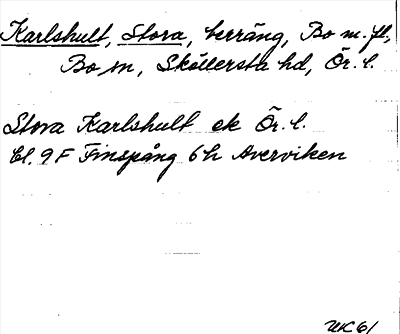 Karlshult, Stora, terräng, Bo m. fl,
Bo sn, Sköllersta hd, Ör. l.
Stora Karlshult ek Ör. l.
bl. 9F Finspång 6h Averviken
UK 61